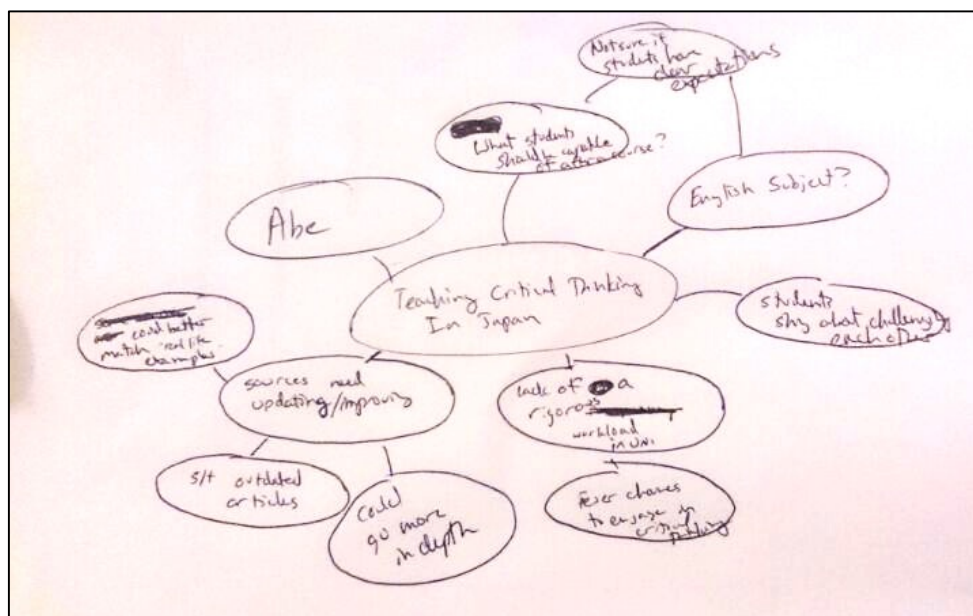 Not sure if
students have
clear
expectations
What students
should capable
of after course?
English Subject?
Abe
Teaching Critical Thinking
In Japan
students
shy about challenging
each other
could better
match "real life
examples"
sources need
updating/improving
lack of a
rigorous
workload
in uni
s/t outdated
articles
could
go more
in depth
Fewer chances
to engage in
critical
thinking